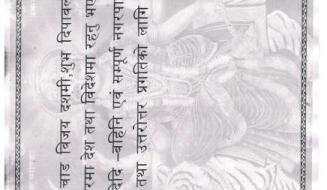 चाड विजय दशमी,शुभ दिपावल
रमा देश तथा विदेशमा रहनु भए
दिदि –बहिनि एवं सम्पूर्ण नगरपा
तथा उत्तरोत्तर प्रगतिको लागि